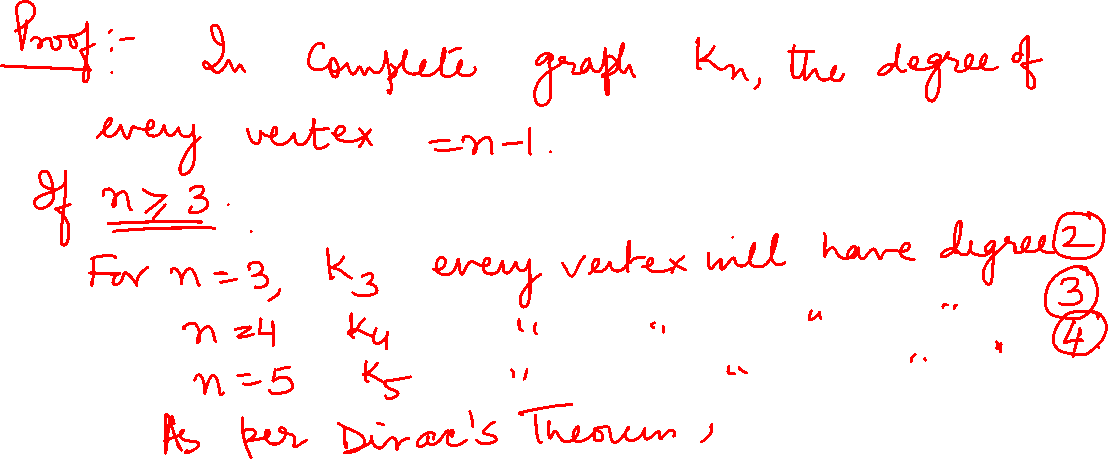 Proof :- In Complete graph Kn, the degree of
every vertex = n-1.
If n ≥ 3.
For n = 3, K3 every vertex will have degree 2
n = 4 K4 " " " " 3
n = 5 K5 " " " " 4
As per Dirac's Theorem,